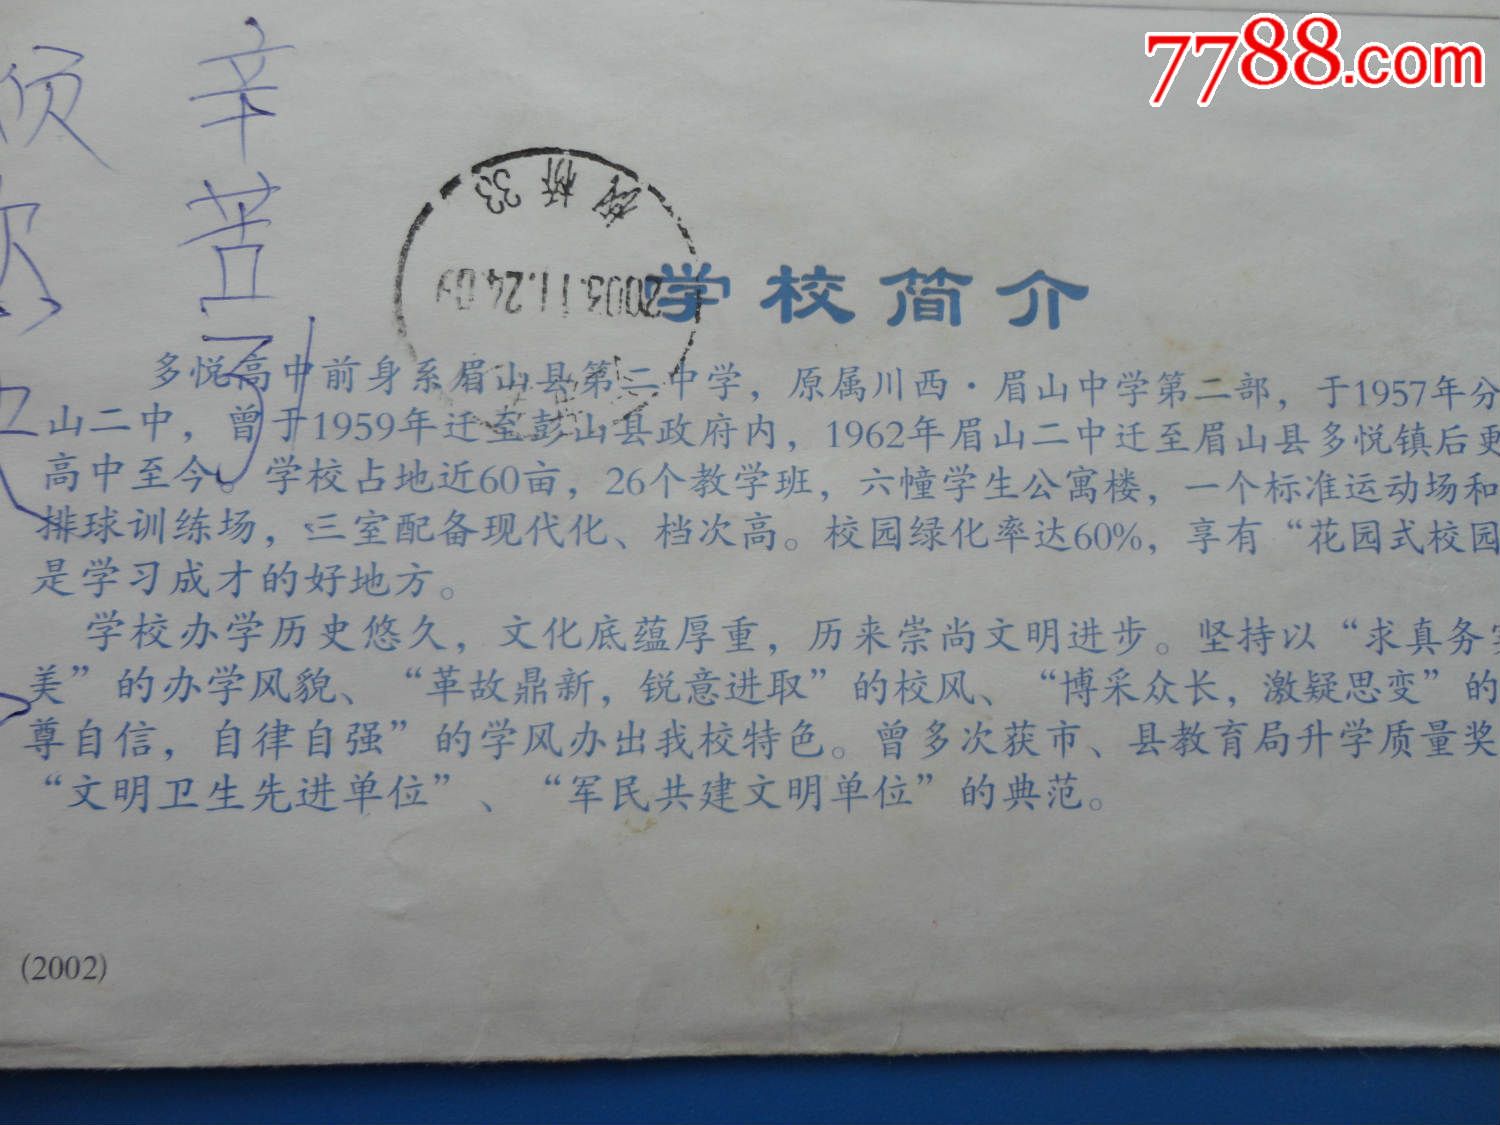 7788.com
辛
苦
了
桥 33
2003.11.24.09
学校简介
多悦高中前身系眉山县第二中学，原属川西·眉山中学第二部，于1957年分
山二中，曾于1959年迁至彭山县政府内，1962年眉山二中迁至眉山县多悦镇后更
高中至今。学校占地近60亩，26个教学班，六幢学生公寓楼，一个标准运动场和
排球训练场，三室配备现代化、档次高。校园绿化率达60%，享有“花园式校园
是学习成才的好地方。
学校办学历史悠久，文化底蕴厚重，历来崇尚文明进步。坚持以“求真务实
美”的办学风貌、“革故鼎新，锐意进取”的校风、“博采众长，激疑思变”的
尊自信，自律自强”的学风办出我校特色。曾多次获市、县教育局升学质量奖
“文明卫生先进单位”、“军民共建文明单位”的典范。
(2002)